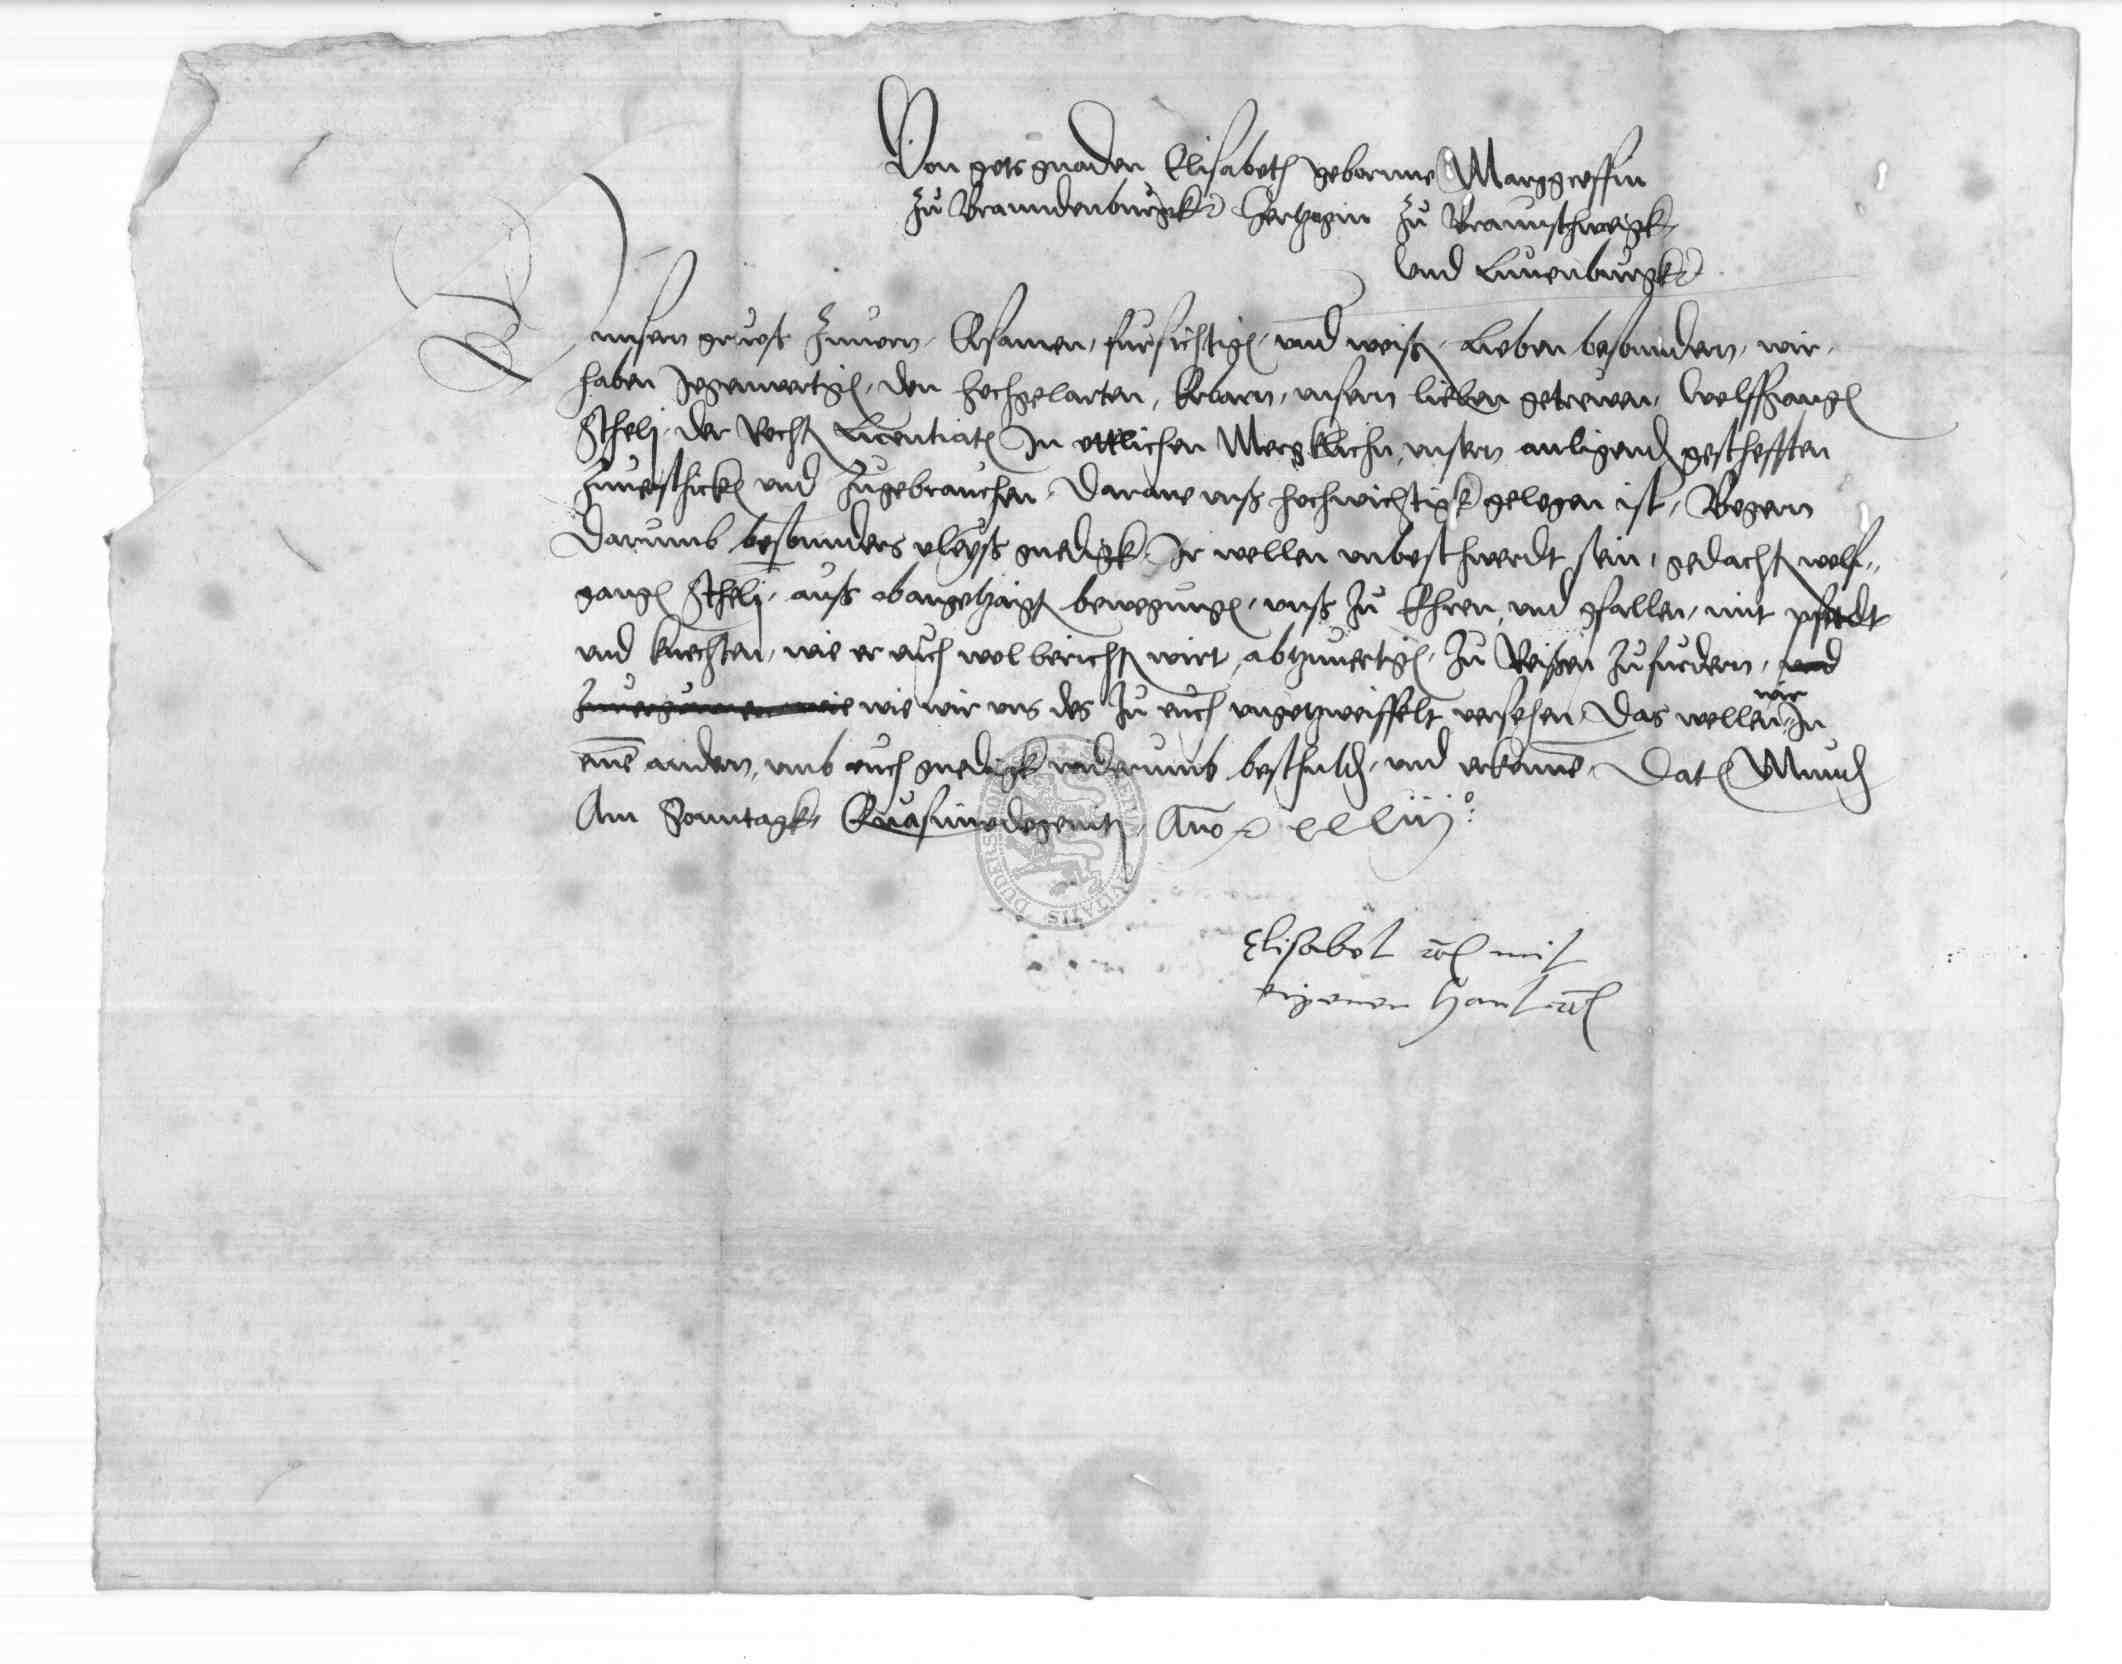 Von gots gnaden Elisabeth gebornne Marggreffin
zu Branndenburgk Hertzogin zu Braunschweigk
Und Luneburgk
unsern grust zuuorn, Ersamen, fursichtigen, und weisen, Lieben besonndern, wir
haben Jegenwertigen, den hochgelarten, Erbarn, unsern lieben getrewen, Wolffgangen
Scheli der Rechten Licentiaten In ettlichen Mergklichen, unsern anligenden geschefften
zuuerschicken und zugebrauchen, Darane unß hochwichtigk gelegen ist, Begern
Darumb besonnders vleyß gnedigk, Ir wellen unbeschwerdt sein, gedachten Wolf-
gangen Scheli, auß obangetzaigten bewegungen, unß zu Ehren, und gfallen, mit pferdt
und knechten, wie er euch wol berichten wirt, abtzuuertigen, zu Reißen zufurdern, und
wie wir uns des zu euch ungetzweiffelt versehen, Das wellen wir In
eine andern, umb euch gnedigk widerumb beschulden, und erkenne, Daten Munden
Am Sonntagk, Quasimodogeniti, Anno
Elisabet mit
eigener Hant
CIVITATIS DUDERSTO